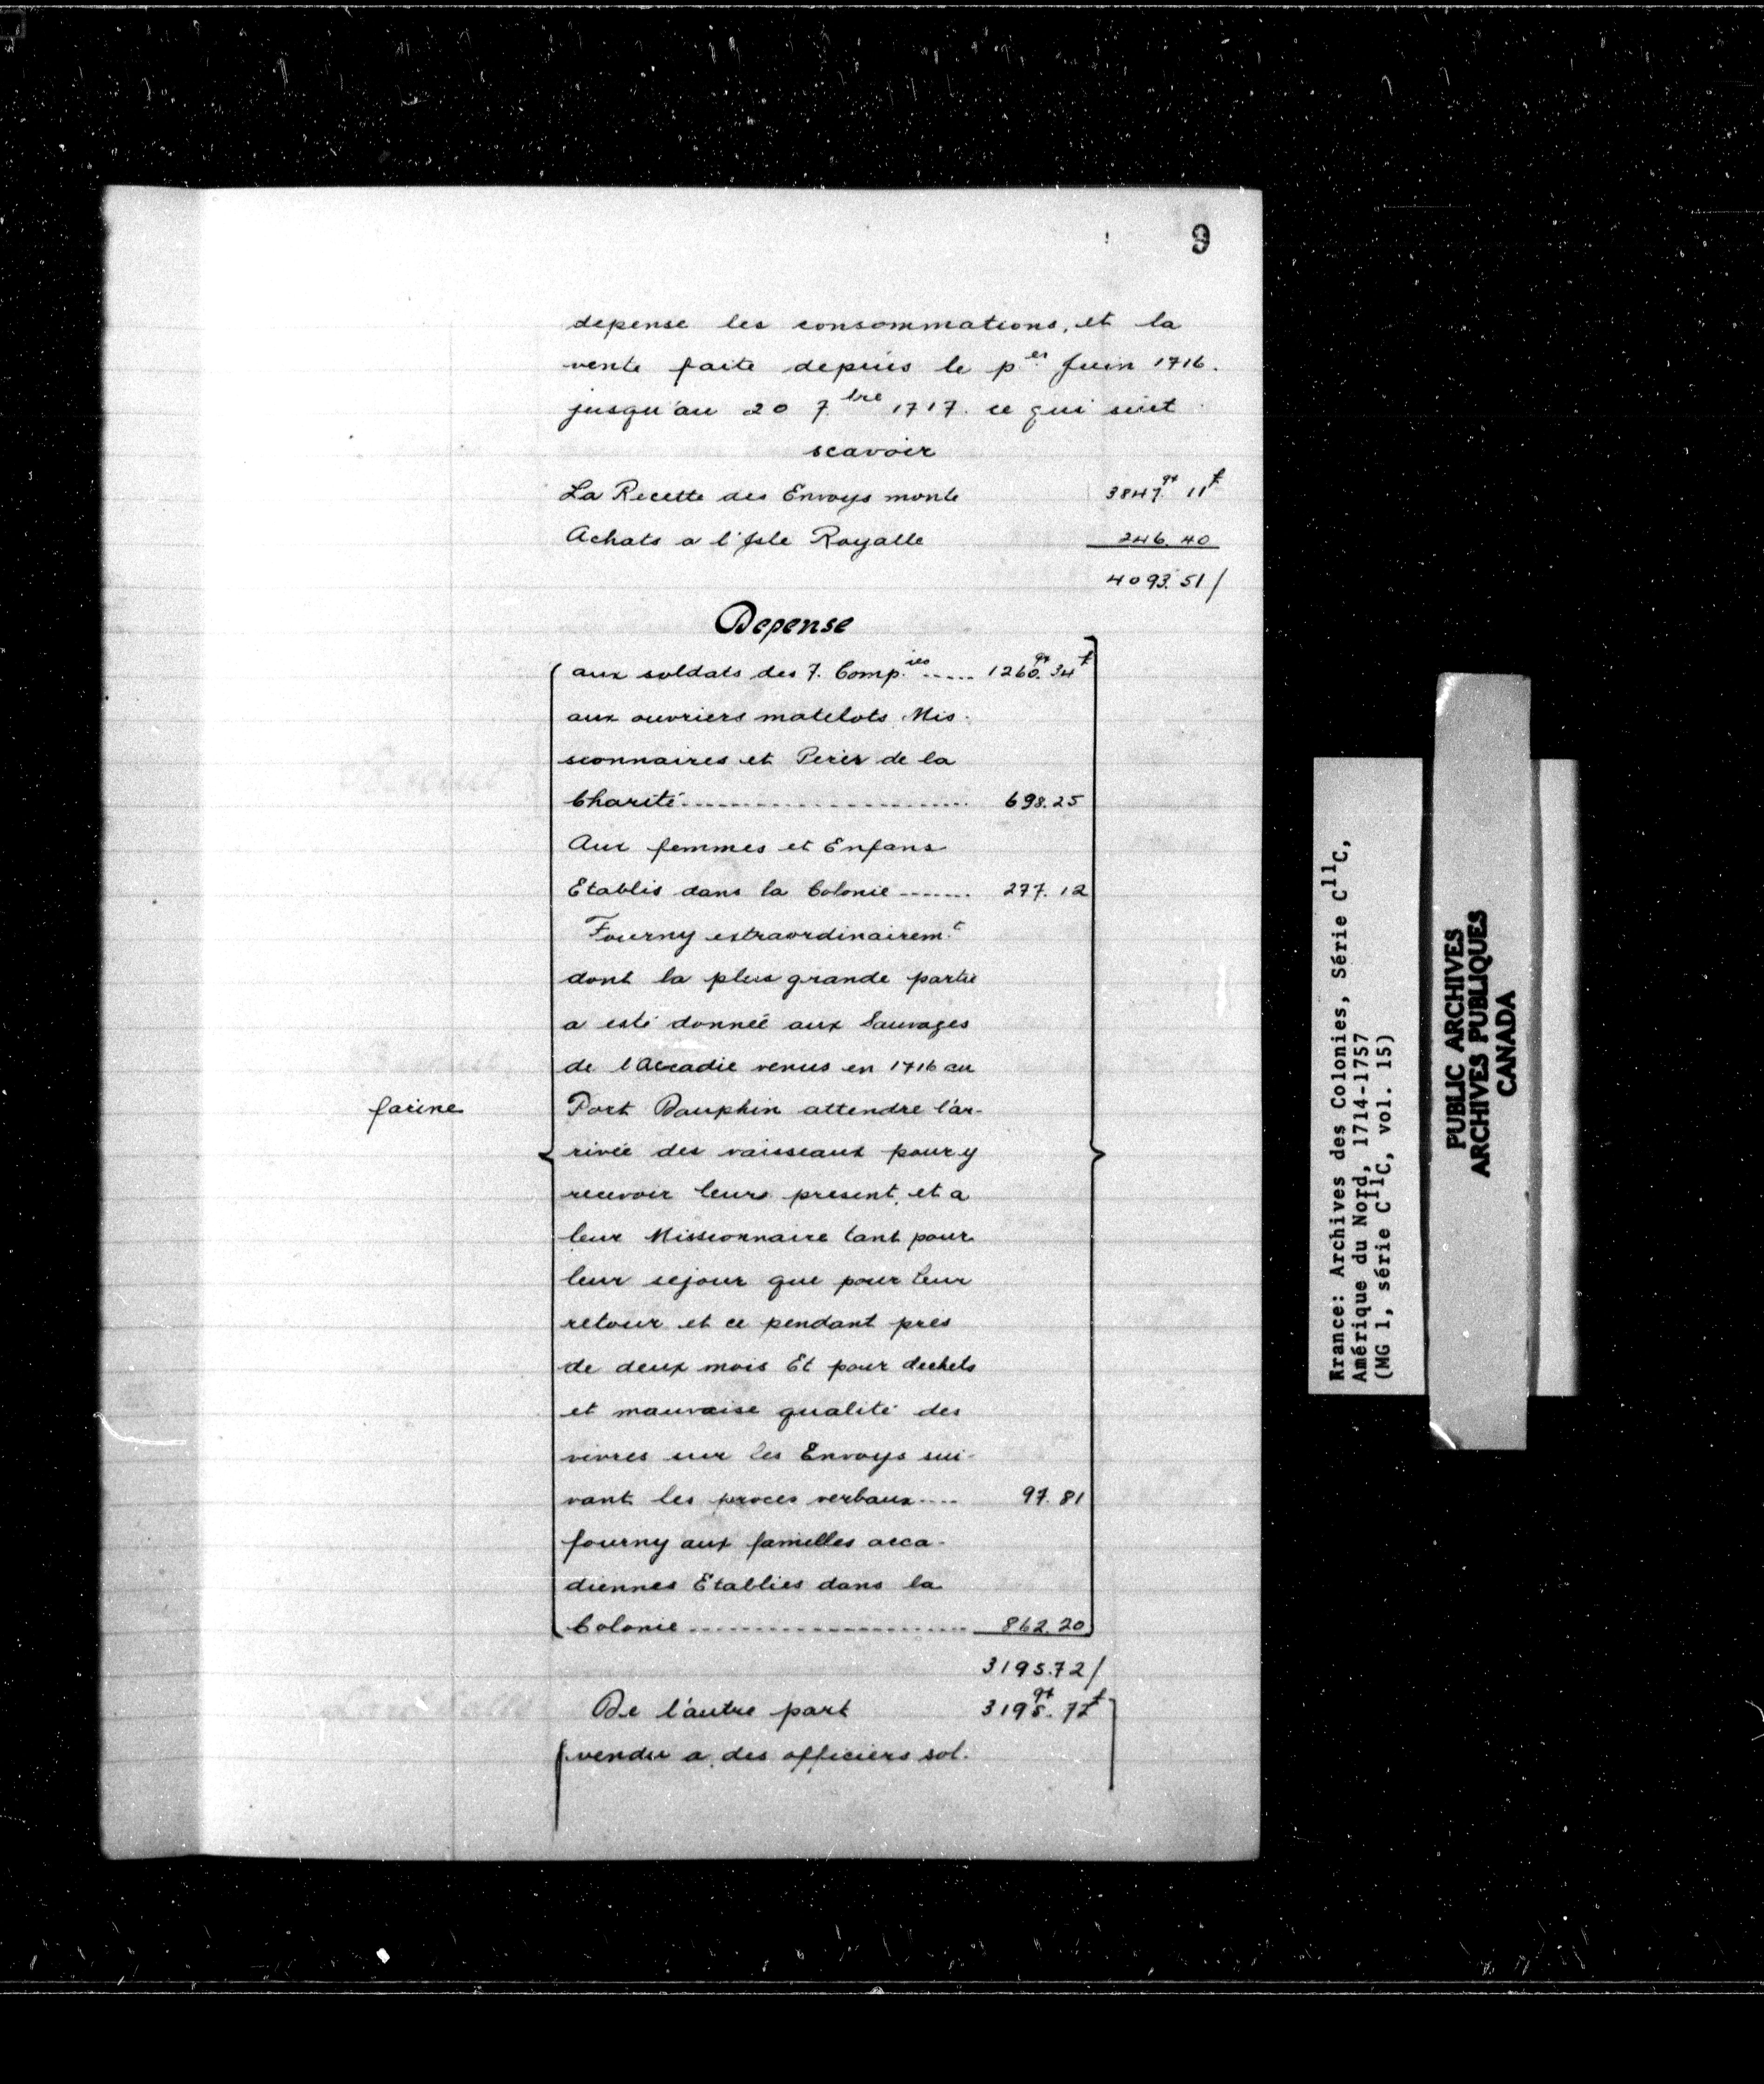 9
depense les consommations, et la
vente faite depuis le p.er Juin 1716.
jusqu'au 20 7.bre 1717. ce qui suit
scavoir
La Recette des Envoys monte 3847.qx 11₶
Achats a l'Isle Royalle 246. 40
4093. 51/
Depense
aux soldats des 7. Comp.ies ..... 1260.qx 34₶
aux ouvriers matelots Mis-
sionnaires et Peres de la
Charité ..................... 698. 25
Aux femmes et Enfans
Etablis dans la Colonie ....... 277. 12
Fourny extraordinairem.t
dont la plus grande partie
a esté donnée aux Sauvages
de l'Accadie venus en 1716 au
farine
Port Dauphin attendre l'ar-
rivée des vaisseaux pour y
recevoir leurs present, et a
leur Missionnaire tant pour
leur sejour que pour leur
retour et ce pendant pres
de deux mois Et pour dechets
et mauvaise qualité des
vivres sur les Envoys sui-
vant les proces verbaux .... 97. 81
fourny aux familles acca-
diennes Etablies dans la
Colonie ..................... 862. 20
3195. 72/
De l'autre part 3195.qx 72₶
vendu a des officiers sol.
France: Archives des Colonies, Série C11C,
Amérique du Nord, 1714-1757
(MG 1, série C11C, vol. 15)
PUBLIC ARCHIVES
ARCHIVES PUBLIQUES
CANADA